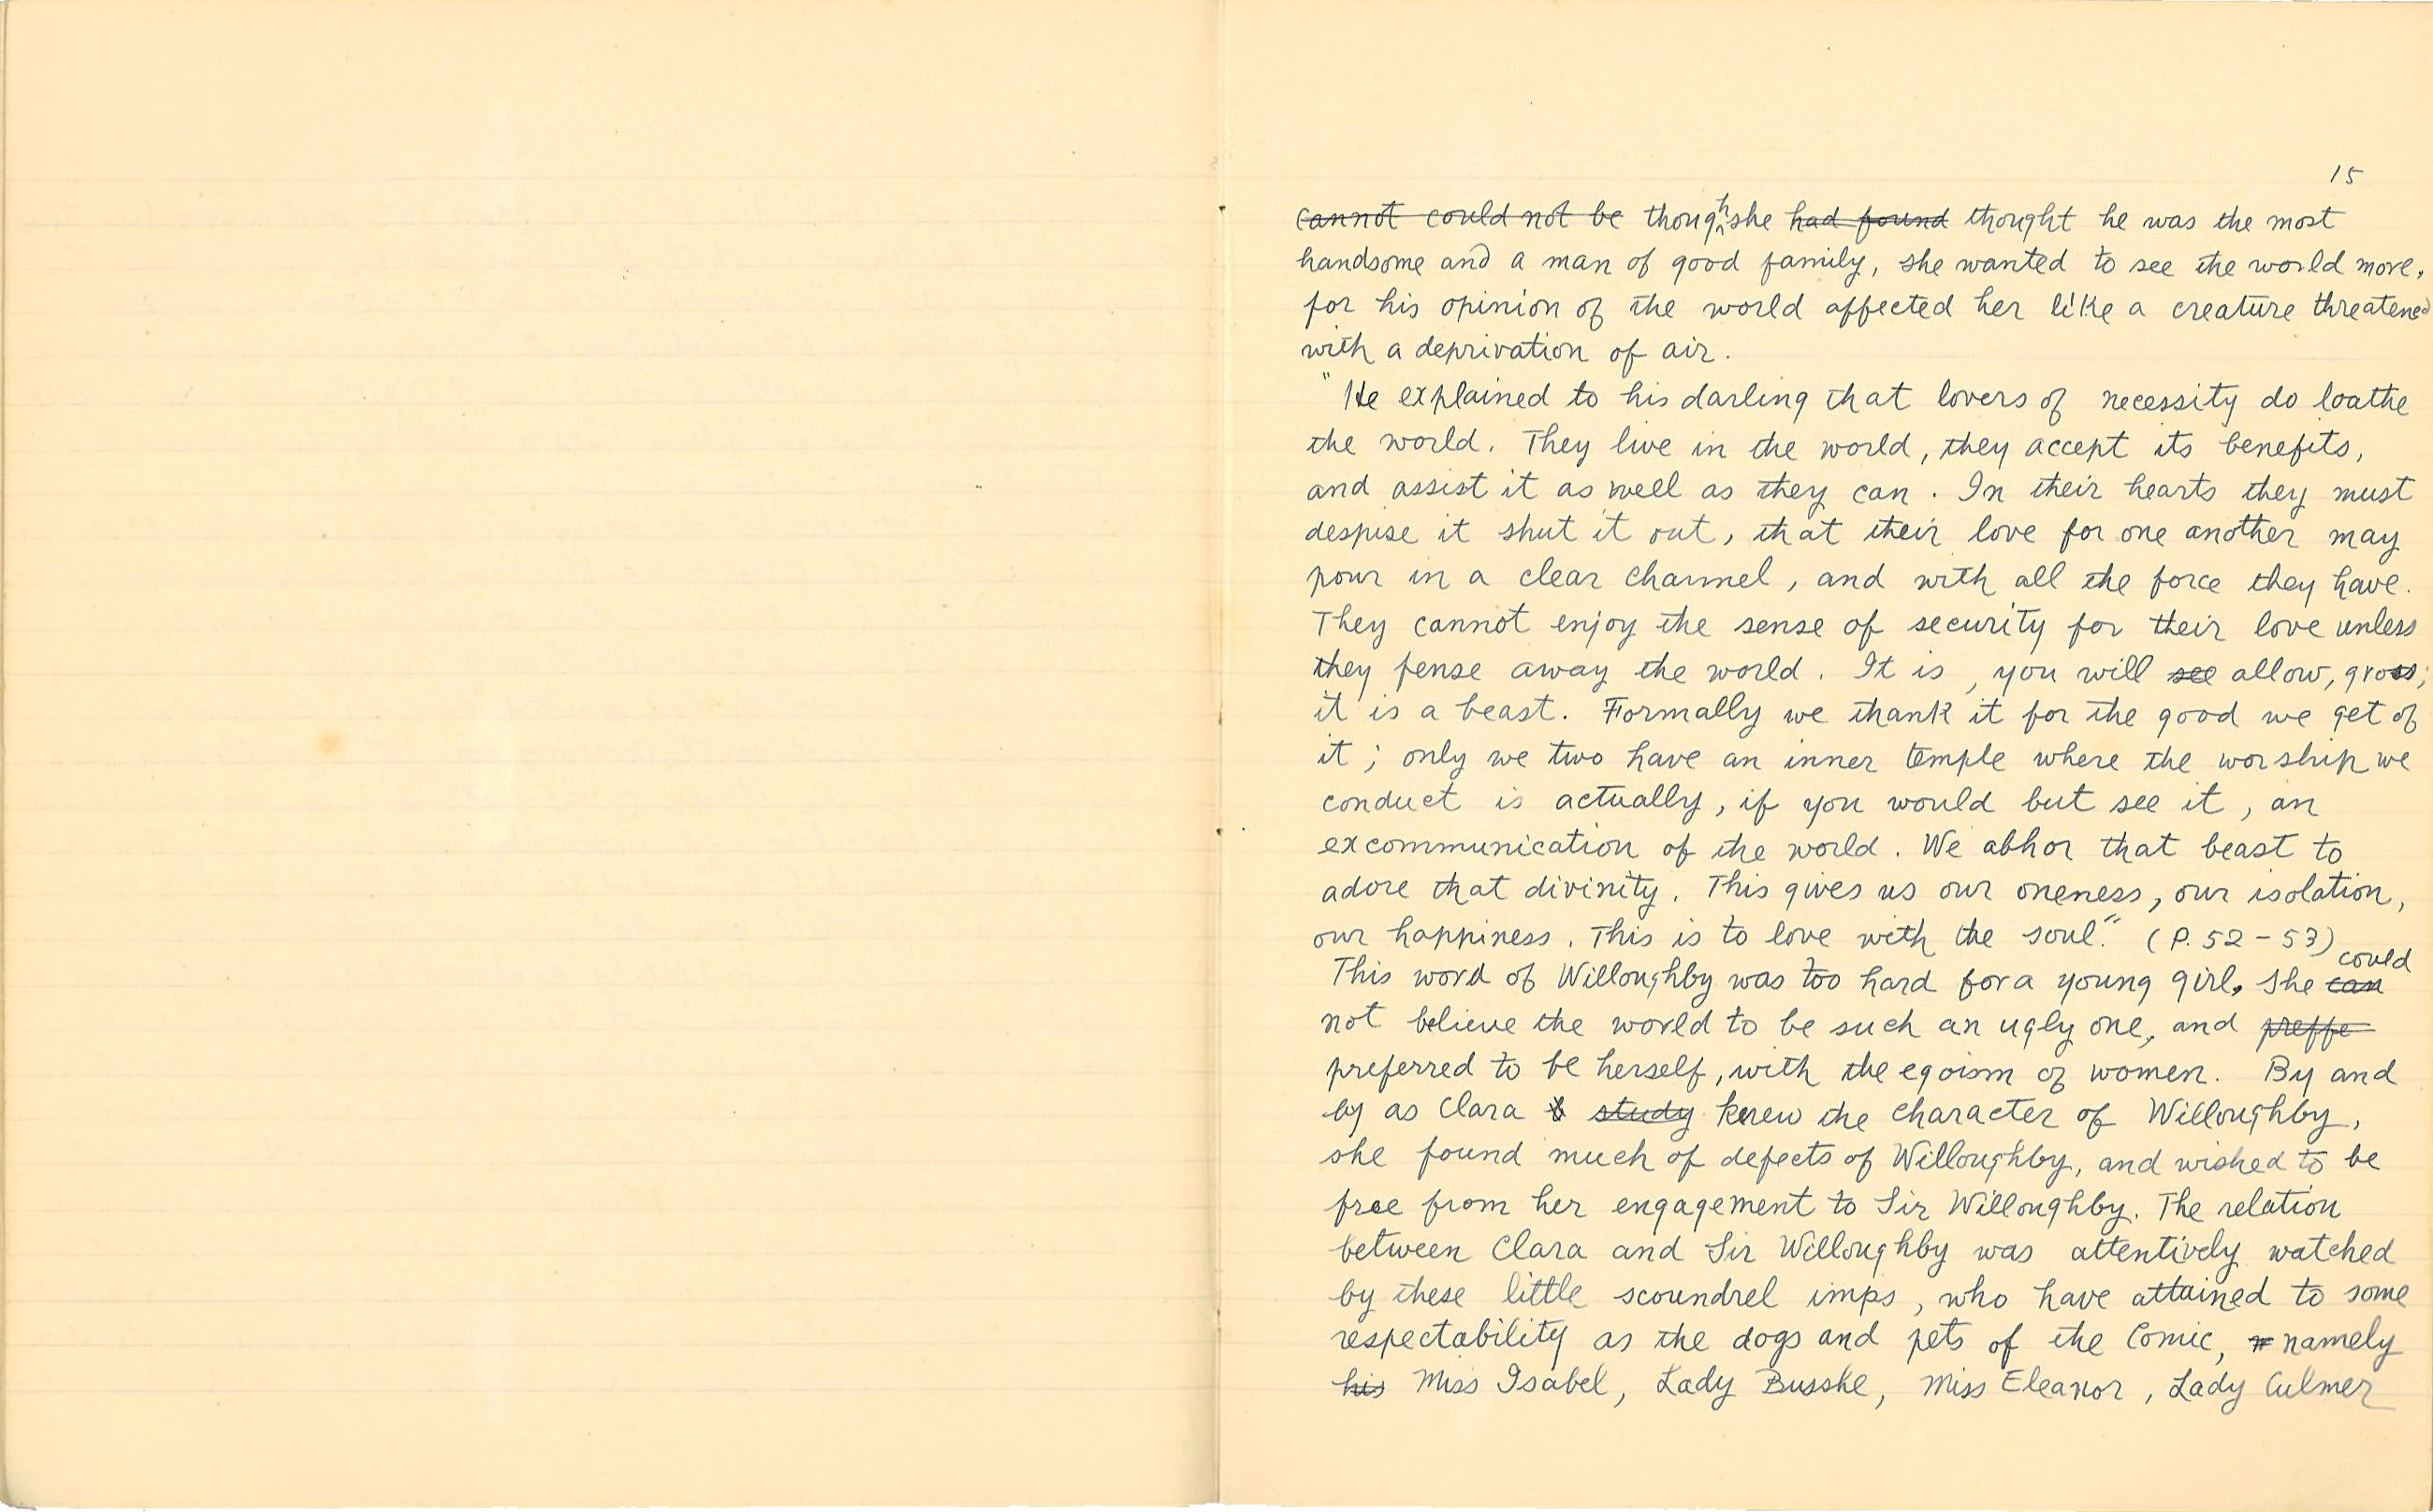 15
cannot could not be though she had found thought he was the most
handsome and a man of good family, she wanted to see the world more,
for his opinion of the world affected her like a creature threatened
with a deprivation of air.
"He explained to his darling that lovers of necessity do loathe
the world. They live in the world, they accept its benefits,
and assist it as well as they can. In their hearts they must
despise it shut it out, that their love for one another may
pour in a clear channel, and with all the force they have.
They cannot enjoy the sense of security for their love unless
they fense away the world. It is, you will see allow, gross;
it is a beast. Formally we thank it for the good we get of
it; only we two have an inner temple where the worship we
conduct is actually, if you would but see it, an
excommunication of the world. We abhor that beast to
adore that divinity. This gives us our oneness, our isolation,
our happiness. This is to love with the soul." (P. 52-53)
This word of Willoughby was too hard for a young girl, she can could
not believe the world to be such an ugly one, and preffe
preferred to be herself, with the egoism of women. By and
by as Clara study knew the character of Willoughby,
she found much of defects of Willoughby, and wished to be
free from her engagement to Sir Willoughby. The relation
between Clara and Sir Willoughby was attentively watched
by these little scoundrel imps, who have attained to some
respectability as the dogs and pets of the Comic, namely
his Miss Isabel, Lady Busshe, Miss Eleanor, Lady Culmer